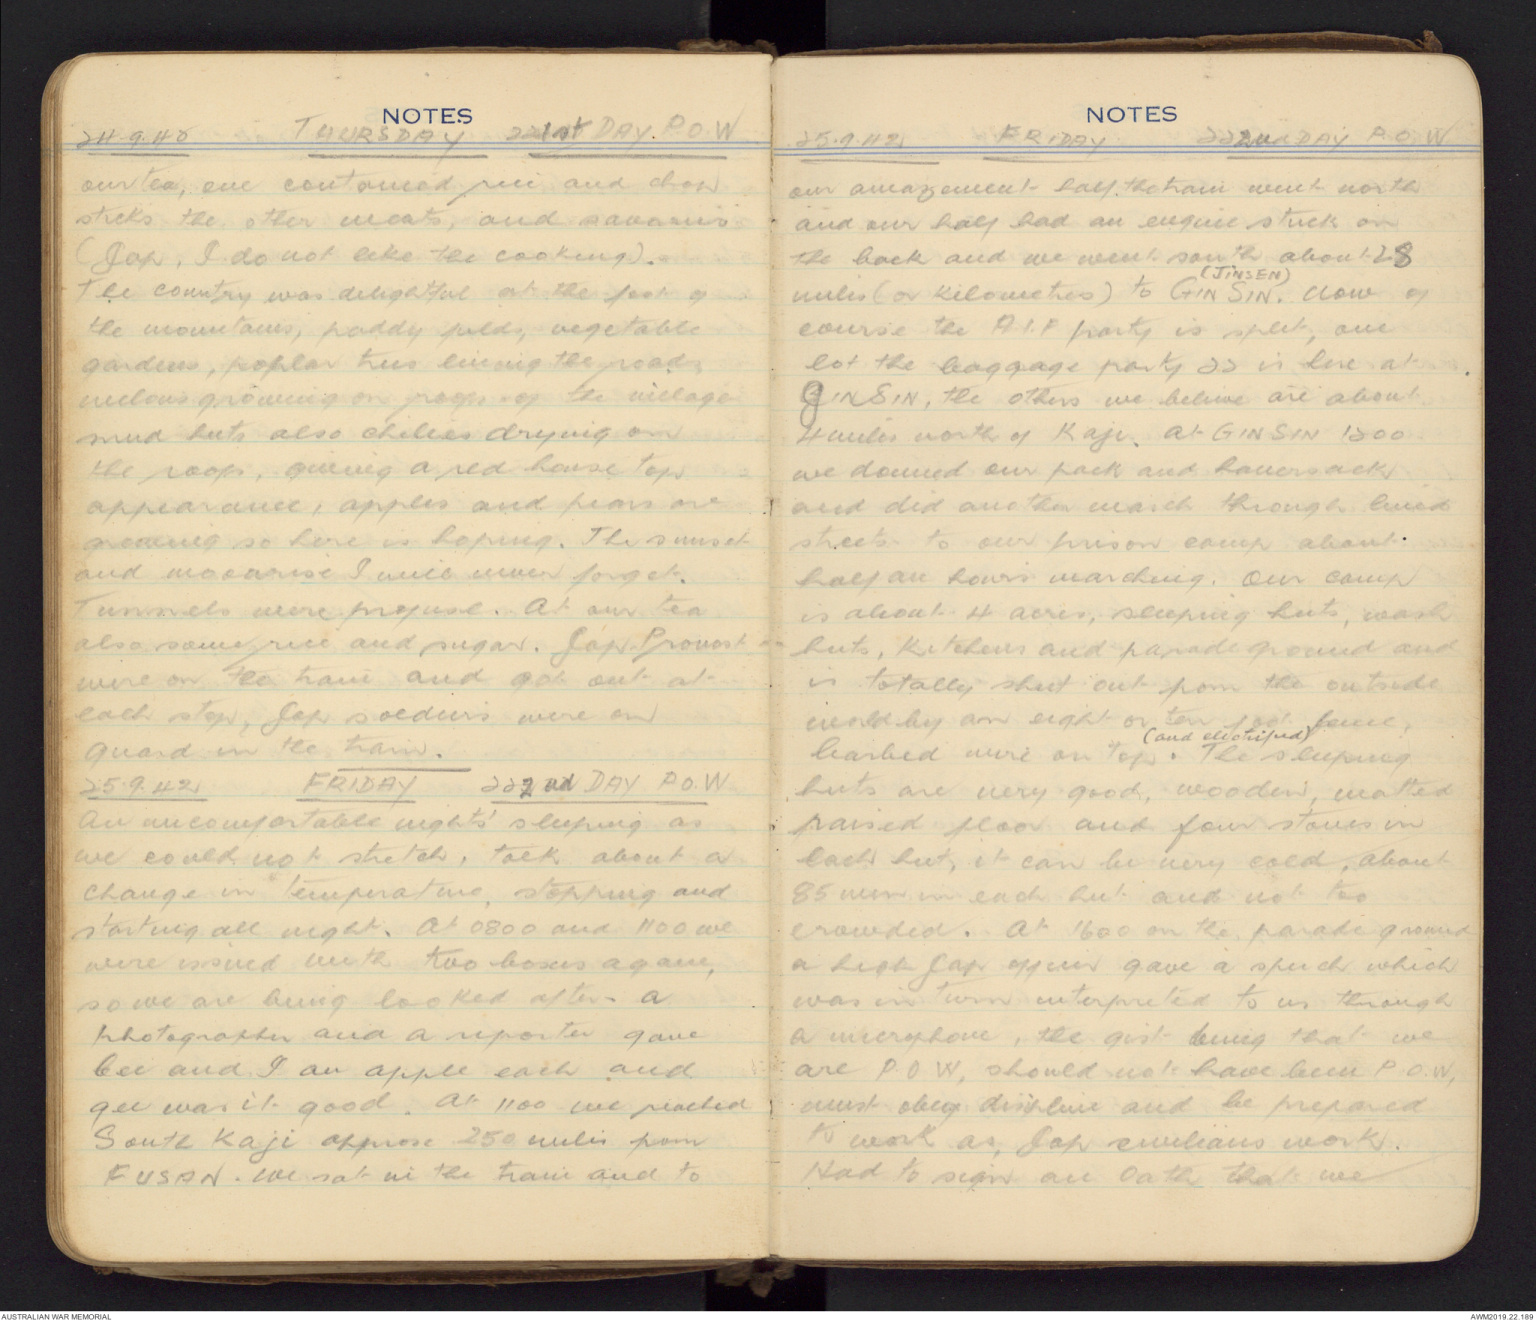 NOTES
24.9.42 THURSDAY 221st DAY P.O.W
our tea, one contained rice and chop
sticks the other meats, and savouries
(Jap, I do not like the cooking).
The country was delightful at the foot of
the mountains, paddy fields, vegetable
gardens, poplar trees lining the roads
melons growing on roofs of the village
mud huts also chilies drying on
the roofs, giving a red house top
appearance, apples and pears are
growing so here is hoping. The sunset
and moonrise I will never forget.
Tunnels were profuse. At our tea
also some rice and sugar. Jap Provost
were on the train and got out at
each stop, Jap soldiers were on
guard in the train.
25.9.42 FRIDAY 222nd DAY P.O.W
An uncomfortable nights' sleeping as
we could not stretch, talk about a
change in temperature, stopping and
starting all night. At 0800 and 1100 we
were issued with two boxes again,
so we are being looked after. A
photographer and a reporter gave
Cec and I an apple each and
gee was it good. At 1100 we reached
South Kaji approx 250 miles from
FUSAN. We sat in the train and to
NOTES
25.9.42 FRIDAY 222nd DAY P.O.W
our amazement half the train went north
and our half had an engine stuck on
the back and we went south about 28
(JINSEN)
miles (or kilometres) to GINSIN. Now of
course the A.I.F party is split, one
lot the baggage party 22 is here at
GINSIN, the others we believe are about
4 miles north of Kaji. At GINSIN 1200
we donned our pack and haversack
and did another march through lined
streets to our prison camp about
half an hours marching. Our camp
is about 4 acres, sleeping huts, wash
huts, Kitchens and parade ground and
is totally shut out from the outside
world by an eight or ten foot fence,
(and electrified)
barbed wire on top. The sleeping
huts are very good, wooden, matted
raised floor and four stoves in
each hut, it can be very cold, about
85 men in each hut and not too
crowded. At 1600 on the parade ground
a high Jap officer gave a speech which
was in turn interpreted to us through
a microphone, the gist being that we
are P.O.W, should not have been P.O.W,
must obey discipline and be prepared
to work as Jap civilians work.
Had to sign an Oath that we